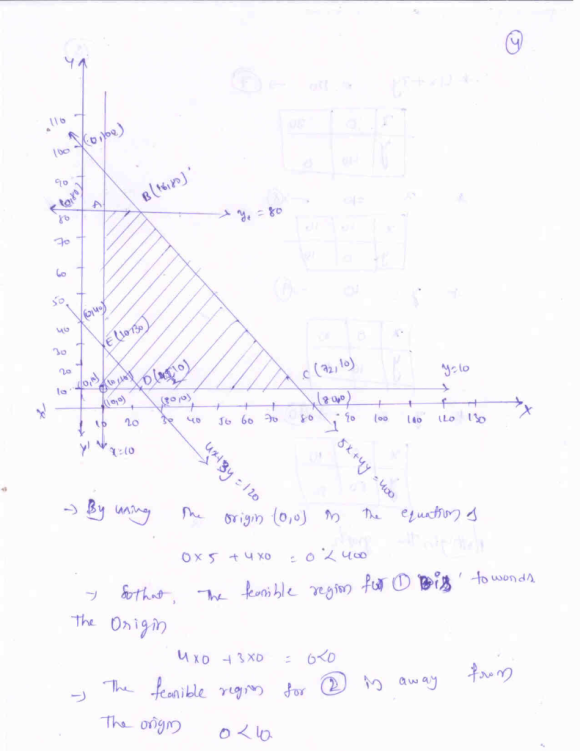 4
y
110
100
(0,100)
90
B(16,80)
A
80
y = 80
70
60
50
(0,40)
40
E(10,30)
30
20
D (10)
C (72,10)
y=10
10
(0,0)
(10,10)
x'
(10,0)
(30,0)
(80,0)
10 20 40 50 60 70 80 90 100 110 120 130
X
y'
x=10
4x+3y=120
5x+4y=400
→ By using the origin (0,0) in the equations
0x5 + 4x0 = 0 < 400
→ Sothat, The feasible region for ① is towards
The Origin
4x0 + 3x0 = 0<0
→ The feasible region for ② is away from
The origin 0<10